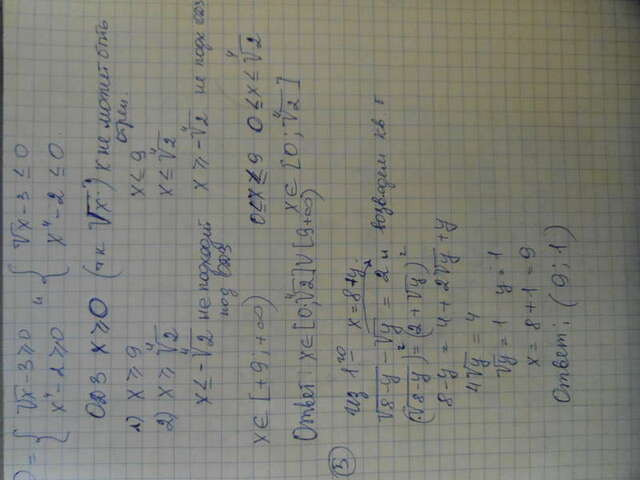 ) = { √x-3≥0 и { √x-3≤0
x⁴-2≥0 x⁴-2≤0
ОДЗ x≥0 (т.к √x) x не может быть отриц.
1) x≥9 x≤9
2) x≥⁴√2 x≤⁴√2
x≤-⁴√2 не подходит под ОДЗ x≥-⁴√2 не подх ОДЗ
x∈[+9;+∞) 0≤x≤9 0≤x≤⁴√2
Ответ: x∈[0;⁴√2]∪[9+∞) x∈[0;⁴√2]
5) из 1го x=8+y
√8-y - √y = 2 и возведем кв
(√8-y)²=(2+√y)²
8-y=4+2√y+y
4√y=4
√y=1 y=1
x=8+1=9
Ответ: (9;1)